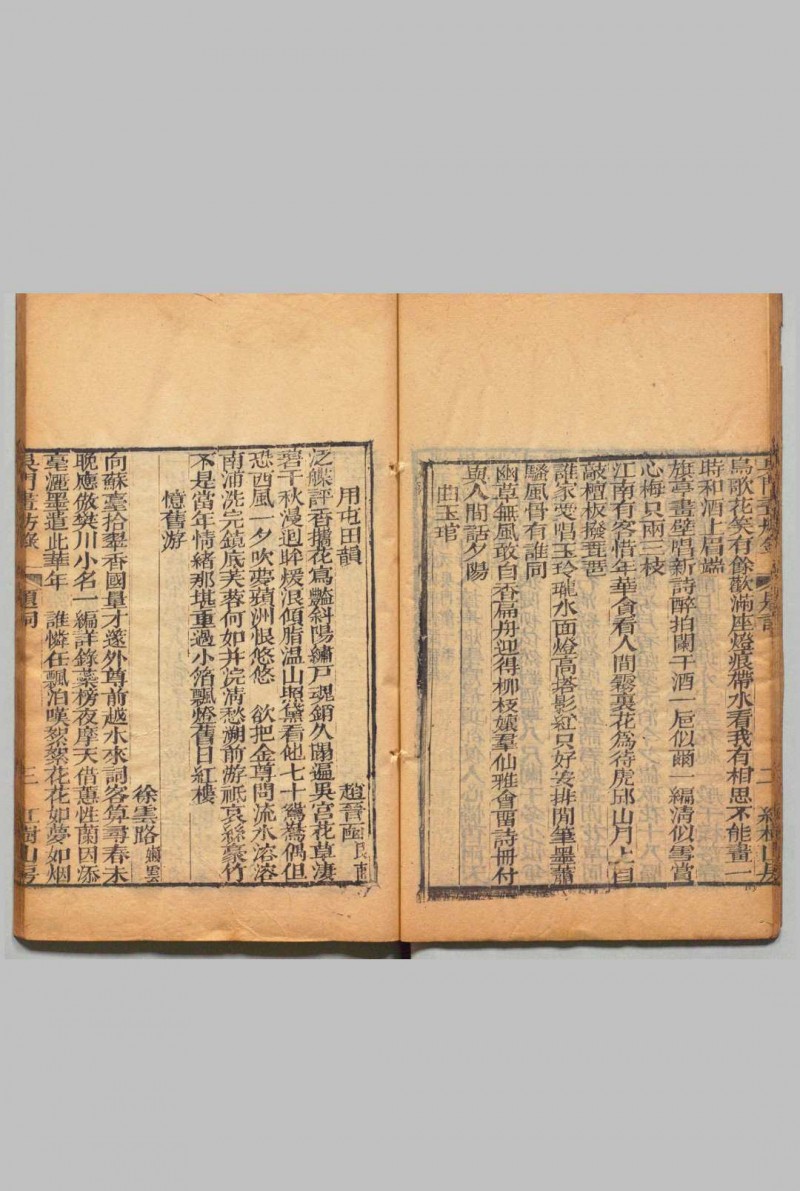 鳥歌花笑有餘歡滿座燈痕帶水看我有相思不能畫一
時和酒上眉端
旗亭畫壁唱新詩醉拍闌干酒一巵似爾一編清似雪賞
心梅只兩三枝
江南有客惜年華會看人間霧裏花為待虎邱山月上自
敲檀板撥琵琶
誰家愛唱玉玲瓏水面燈高塔影紅只好安排閒筆墨蕭
騷風骨有誰同
幽草無風敢自香扁舟迎得柳枝孃羣仙雅會留詩冊付
與人間話夕陽
曲玉琯
用屯田韻 趙晉函
泛艓評香擕花寫豔斜陽繡戶魂銷久閱遍吳宮花草淒
碧千秋漫迴眸煖浪傾脂溫山照黛看他七十鴛鴦偶但
恐西風一夕吹夢蘋洲恨悠悠 欲把金尊問流水溶溶
南浦洗完鏡底芙蓉何如井浣清愁溯前游祇哀絲豪竹
不是當年情緒那堪重過小箔飄燈舊日紅樓
憶舊游
徐雲路
向蘇臺拾翠香國量才邃外尊前越水來詞客算尋春未
晚應倣樊川小名一編詳錄蘂榜夜摩天借蕙性蘭因添
毫灑墨遣此華年 誰憐任飄泊嘆絮絮花花如夢如烟
吳門畫舫錄 題詞 三 紅樹山房